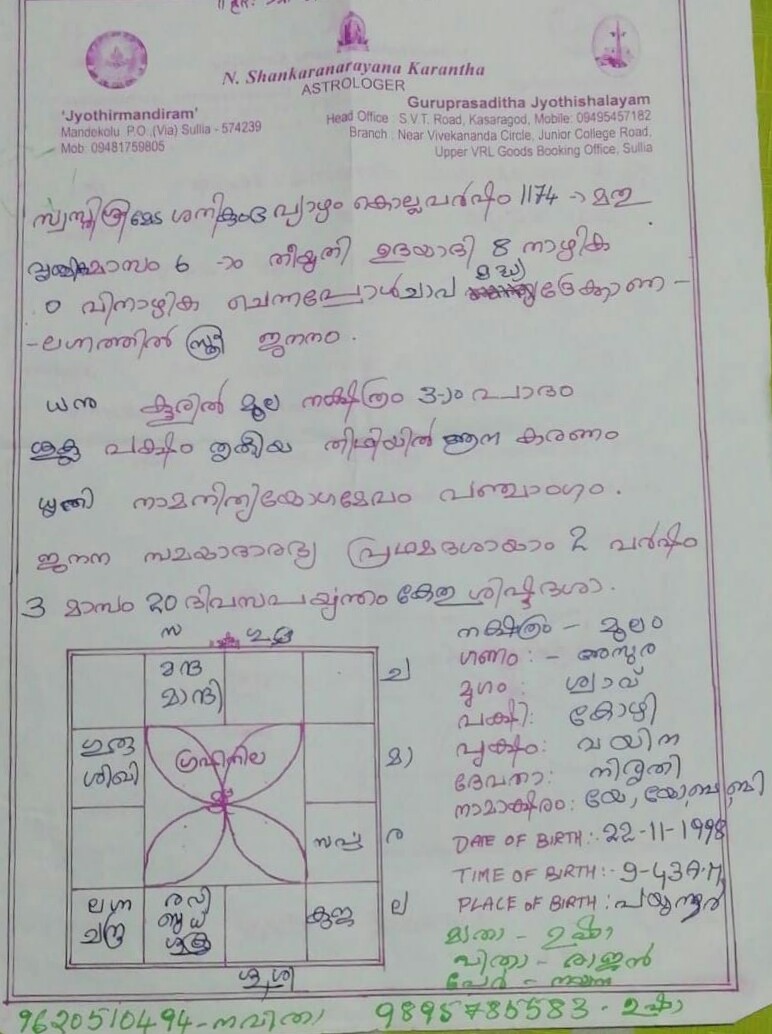 N. Shankaranarayana Karantha
ASTROLOGER
'Jyothirmandiram'
Mandekolu P.O.,(Via) Sullia - 574239
Mob: 09481759805
Guruprasaditha Jyothishalayam
Head Office : S.V.T. Road, Kasaragod, Mobile: 09495457182
Branch : Near Vivekananda Circle, Junior College Road,
Upper VRL Goods Booking Office, Sullia
സ്വസ്തിശ്രീമേട ശനികുംഭ വ്യാഴം കൊല്ലവർഷം 1174 -ാമത
വൃശ്ചികമാസം 6 -ാം തീയ്യതി ഉദയാദി 8 നാഴിക
0 വിനാഴിക ചെന്നപ്പോൾ ചാവ മദ്ധ്യ ദ്രേക്കാണ -
- ലഗ്നത്തിൽ സ്ത്രീ ജനനം .
ധനു കൂരിൽ മൂല നക്ഷത്രം 3-ാം പാദം
ശുക്ല പക്ഷം തൃതീയ തിഥിയിൽ ആന കരണം
ധൃതി നാമനിത്യയോഗമേവം പഞ്ചാംഗം .
ജനന സമയാദാരഭ്യ പ്രഥമദശായാം 2 വർഷം
3 മാസം 20 ദിവസപര്യന്തം കേതു ശിഷ്ടദശാ .
നക്ഷത്രം - മൂലം
ഗണം : - അസുര
മൃഗം : ശ്വാവ്
പക്ഷി : കോഴി
വൃക്ഷം : വയിന
ദേവതാ : നിരൃതി
നാമാക്ഷരം : യേ, യോ, ബ, ബി
DATE OF BIRTH :- 22-11-1998
TIME OF BIRTH :- 9-43 A.M
PLACE OF BIRTH : പയ്യന്നൂർ
മാതാ - ഉഷാ
പിതാ - രാജൻ
പേര് -
സ
മന്ദ
മാന്ദി
ച
ഗുരു
ശിഖി
ഗ്രഹനില
മാ
സർപ്പ
ര
ലഗ്ന
ചന്ദ്ര
രവി
ബുധ
ശുക്ര
കുജ
ല
9620510494 - നവിതാ 9895785583 - ഉഷാ